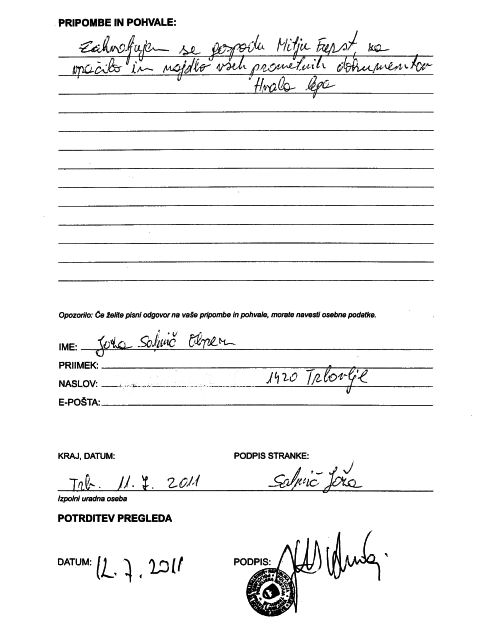 PRIPOMBE IN POHVALE:
Zahvaljujem se gospodu Mitju Ferst, za
in najdbo vseh prometnih dokumentov
Hvala lepa
Opozorilo: Če želite pisni odgovor na vaše pripombe in pohvale, morate navesti osebne podatke.
IME: Joža Salmič
PRIIMEK:
NASLOV: 1420 Trbovlje
E-POŠTA:
KRAJ, DATUM: PODPIS STRANKE:
Trb. 11.7. 2011 Salmič Joža
Izpolni uradna oseba
POTRDITEV PREGLEDA
DATUM: 12.7.2011 PODPIS: